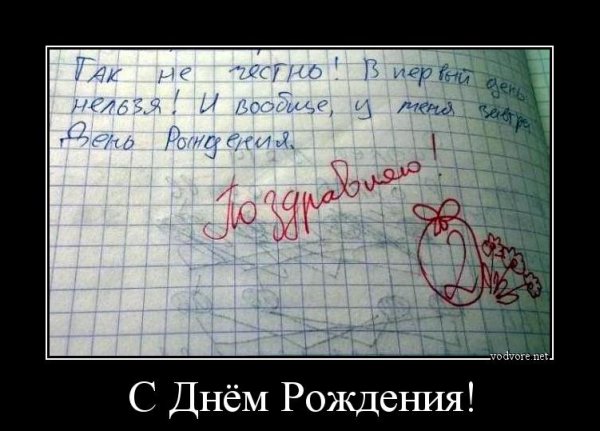 Так не честно! В первый день
нельзя! И вообще, у меня завтра
День Рождения.
Поздравляю!
2
vodvore.net
С Днём Рождения!